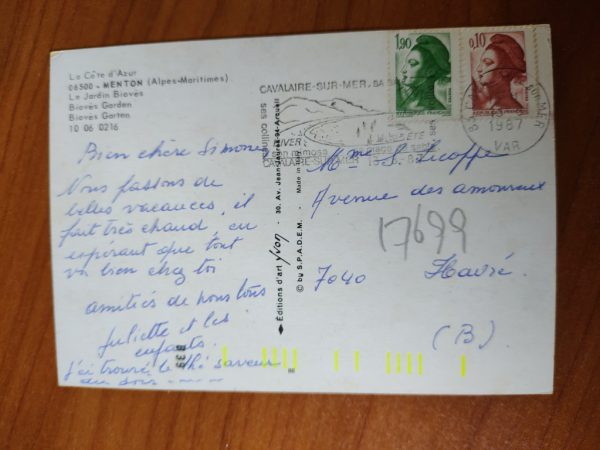 La Côte d'Azur
06500 - MENTON (Alpes-Maritimes)
Le Jardin Biovès
Biovès Garden
Biovès Garten
10 06 0216
Bien chère Simone,
Nous passons de
belles vacances, il
fait très chaud, en
espérant que tout
va bien chez toi
amitiés de nous tous
Juliette et les
enfants.
J'ai trouvé le thé saveur
du soir
Éditions d'art yvon - 30, Av. Jean-Jaurès - Arcueil
© by S.P.A.D.E.M. - Made in
1,90
0,10
CAVALAIRE-SUR-MER, SA
ses collines
HIVER
ÉTÉ
CAVALAIRE-SUR-MER
SUR MER
1987
VAR
Mme S.
Avenue des amoureux
17699
7040 Havré.
(B)